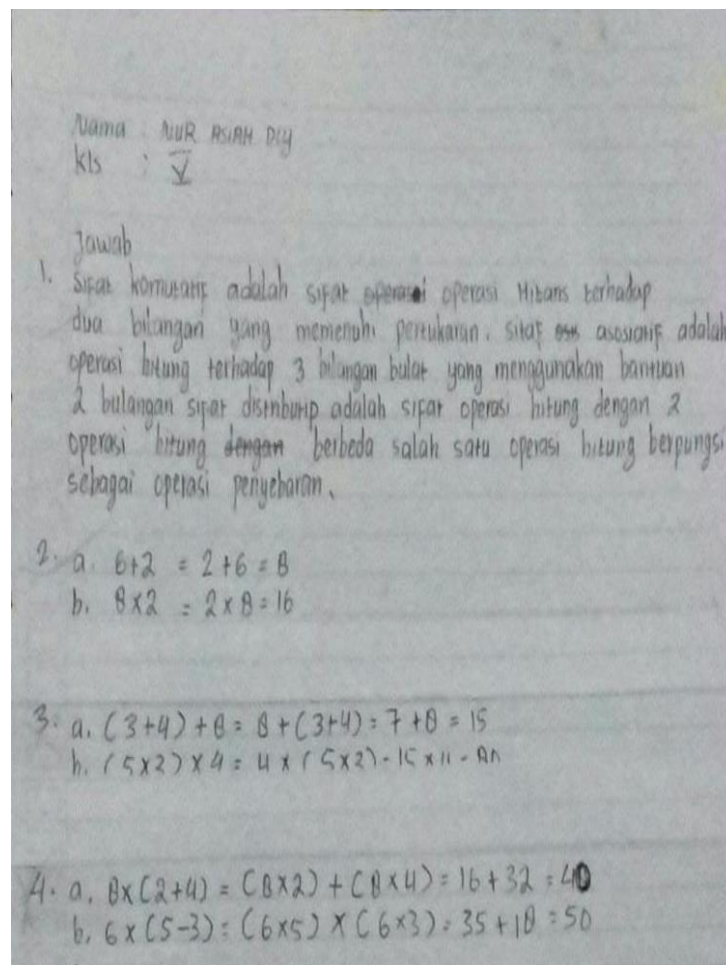 Nama : NUR ASIAH DCY
Kls : V
Jawab
1. Sifat komutatif adalah sifat operasi operasi Hitans terhadap
dua bilangan yang memenuhi pertukaran. sitaf asosiatif adalah
operasi hitung terhadap 3 bilangan bulat yang menggunakan bantuan
2 bulangan sifat distributip adalah sifat operasi hitung dengan 2
operasi hitung dengan berbeda salah satu operasi hitung berpungsi
sebagai operasi penyebaran.
2. a. 6+2 = 2+6 = 8
b. 8x2 = 2x8 = 16
3. a. (3+4)+8 = 8+(3+4) = 7+8 = 15
b. (5x2)x4 = 4x(5x2)
4. a. 8x(2+4) = (8x2)+(8x4) = 16+32 = 40
b. 6x(5-3) = (6x5)x(6x3) = 35+18 = 50